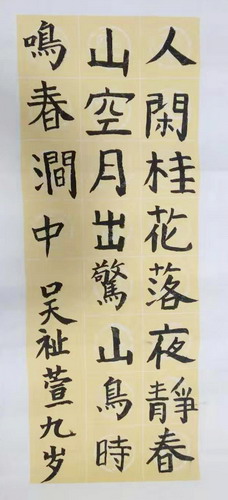 人閑桂花落夜靜春
山空月出驚山鳥時
鳴春澗中
吴祉萱九岁